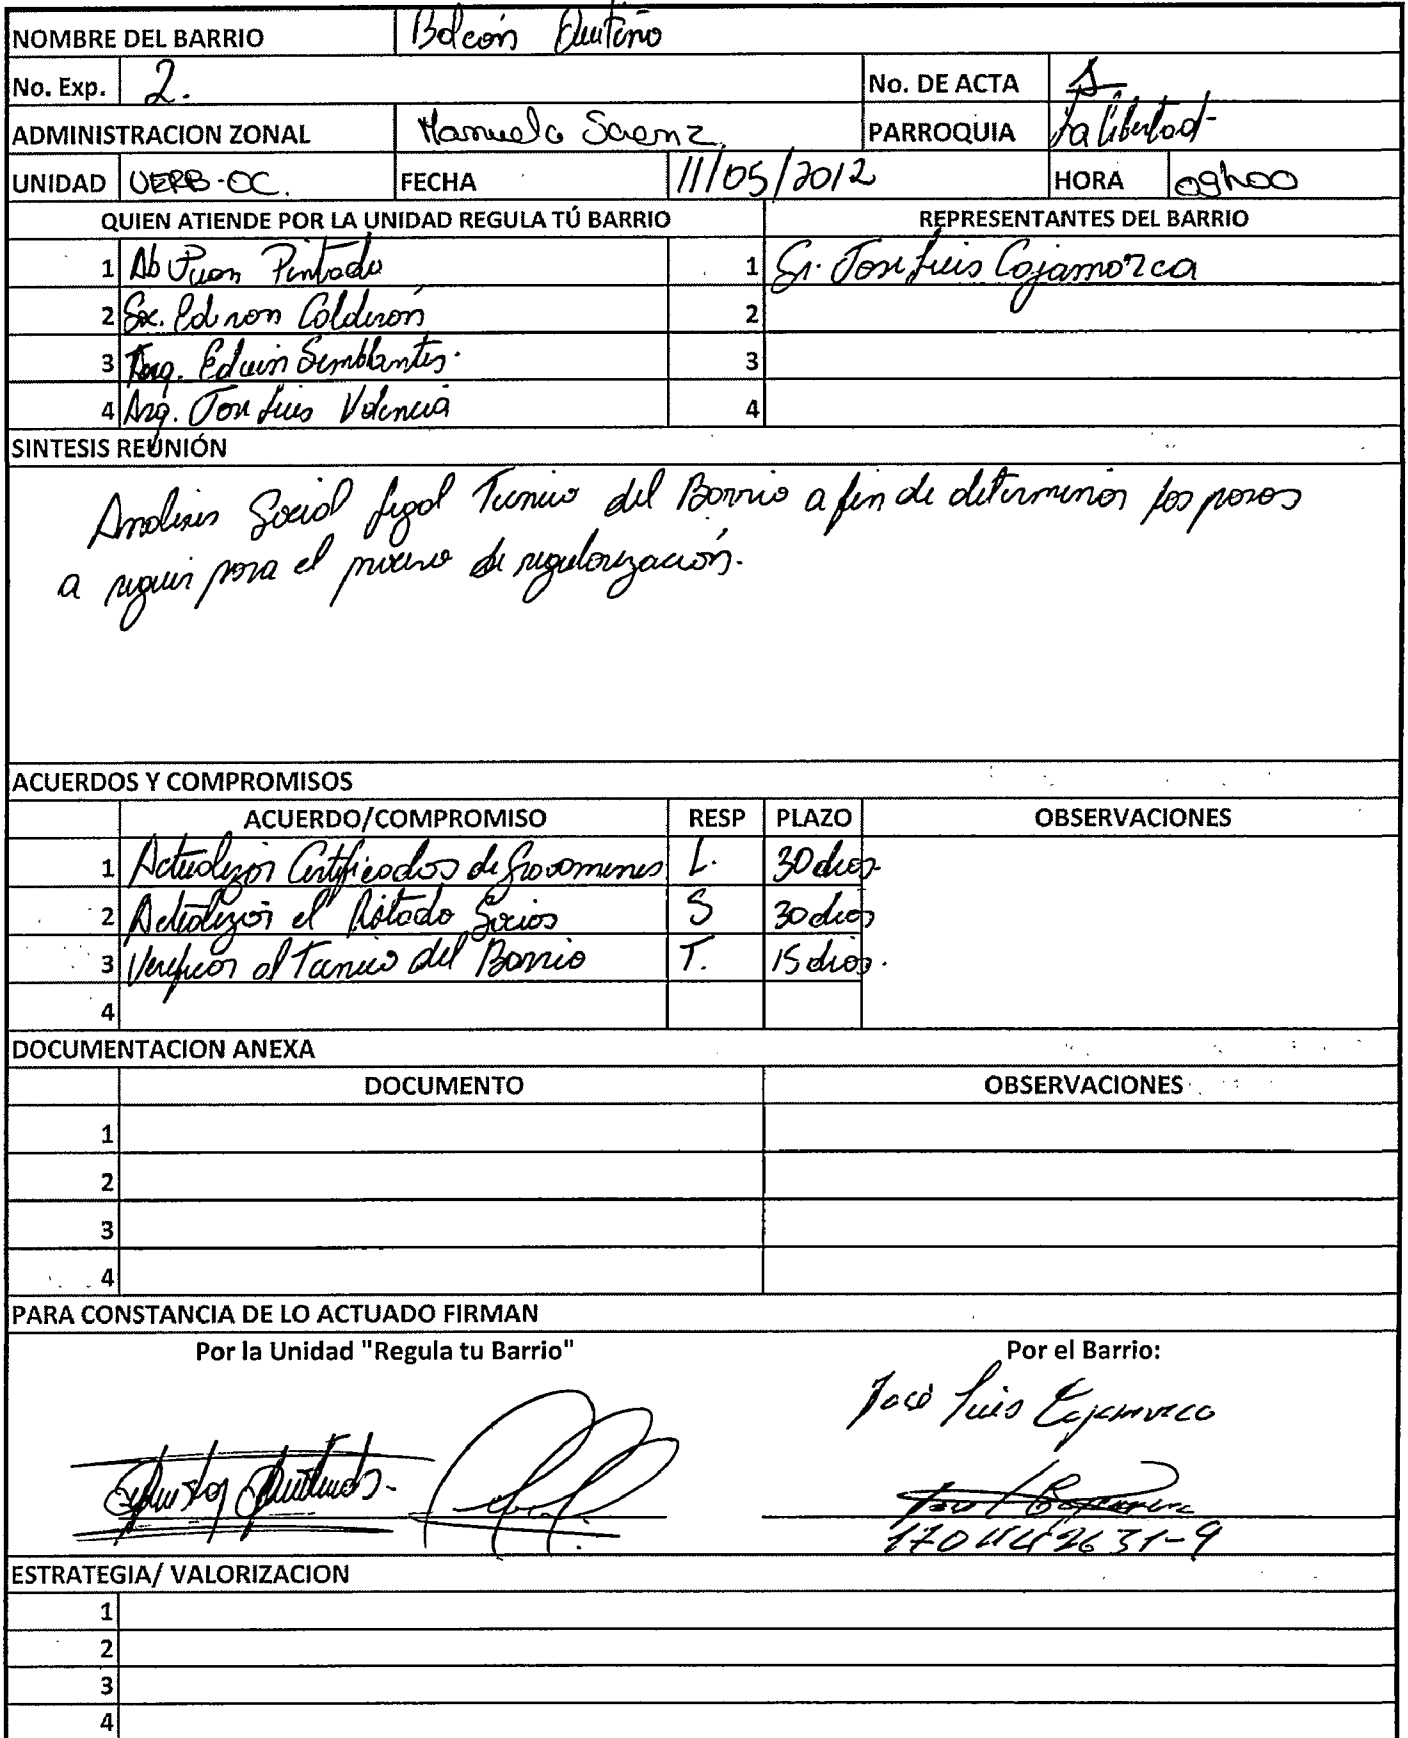 NOMBRE DEL BARRIO Balcón Quiteño
No. Exp. 2. No. DE ACTA 1
ADMINISTRACION ZONAL Manuela Saenz. PARROQUIA La Libertad
UNIDAD UERB-OC. FECHA 11/05/2012 HORA 09h00
QUIEN ATIENDE POR LA UNIDAD REGULA TÚ BARRIO REPRESENTANTES DEL BARRIO
1 Ab Juan Pintado 1 Sr. Jose Luis Cajamarca
2 Soc. Edison Calderón 2
3 Arq. Edwin Semblantes. 3
4 Arq. Jose Luis Valencia 4
SINTESIS REUNIÓN
Analisis Social Legal Tecnico del Barrio a fin de determinar los pasos
a seguir para el proceso de regularización.
ACUERDOS Y COMPROMISOS
ACUERDO/COMPROMISO RESP PLAZO OBSERVACIONES
1 Actualizar Certificados de Gravamenes L. 30 dias.
2 Actualizar el listado Socios S 30 dias
3 Verificar al Tecnico del Barrio T. 15 dias.
4
DOCUMENTACION ANEXA
DOCUMENTO OBSERVACIONES
1
2
3
4
PARA CONSTANCIA DE LO ACTUADO FIRMAN
Por la Unidad "Regula tu Barrio" Por el Barrio:
José Luis Cajamarca
ESTRATEGIA/ VALORIZACION
1
2
3
4